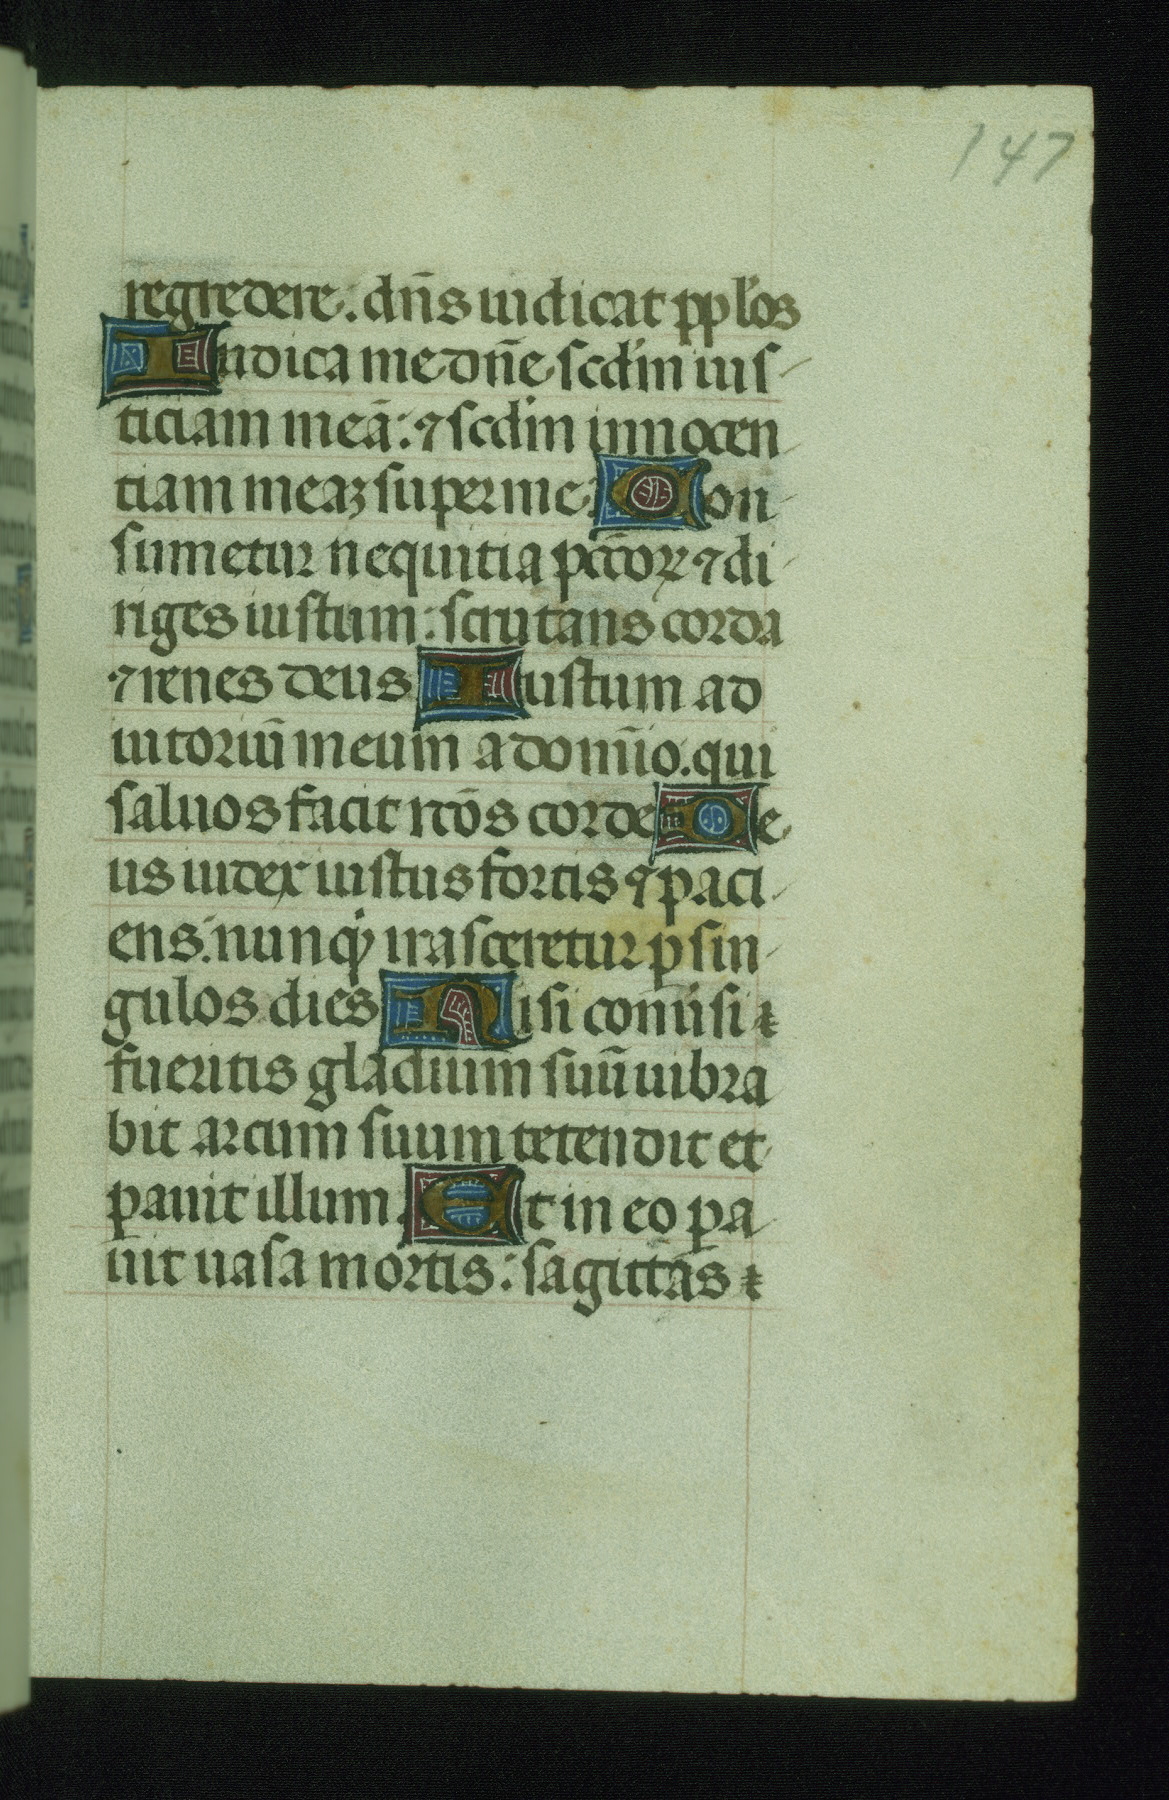 147
regredere. dn̄s iudicat ppl'os
Iudica me dn̄e scd'm ius
ticiam meā: ⁊ scd'm innocen
tiam meaꝫ super me. Con
sumetur nequitia pctōꝝ ⁊ di
riges iustum: scrutans corda
⁊ renes deus Iustum ad
iutoriū meum a domīo. qui
saluos facit rctōs corde De
us iudex iustus fortis ⁊ paci
ens: nunqͥ irasceretur ꝑ sin
gulos dies Nisi conūsi
fueritis gladium suū uibra
bit arcum suum tetendit et
ꝑauit illum. Et in eo ꝑa
uit uasa mortis: sagittas